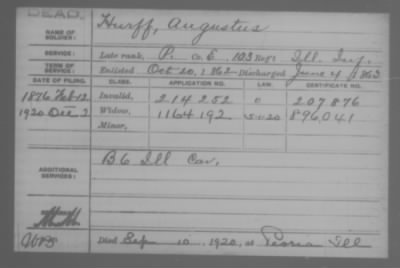 DEAD.
NAME OF SOLDIER: Hurff, Augustus
SERVICE: Late rank, P. Co. E, 103 Reg't Ill. Inf.
TERM OF SERVICE: Enlisted Oct 20, 1862 Discharged June 4, 1863
DATE OF FILING. CLASS. APPLICATION NO. LAW. CERTIFICATE NO.
1876 Feb 12 Invalid, 214 252 0 207 876
1920 Dec 2 Widow, 1164 192 5-1-20 896,041
Minor,
ADDITIONAL SERVICES: B. 6 Ill Cav.
Died Sep 10, 1920, at Peoria Ill